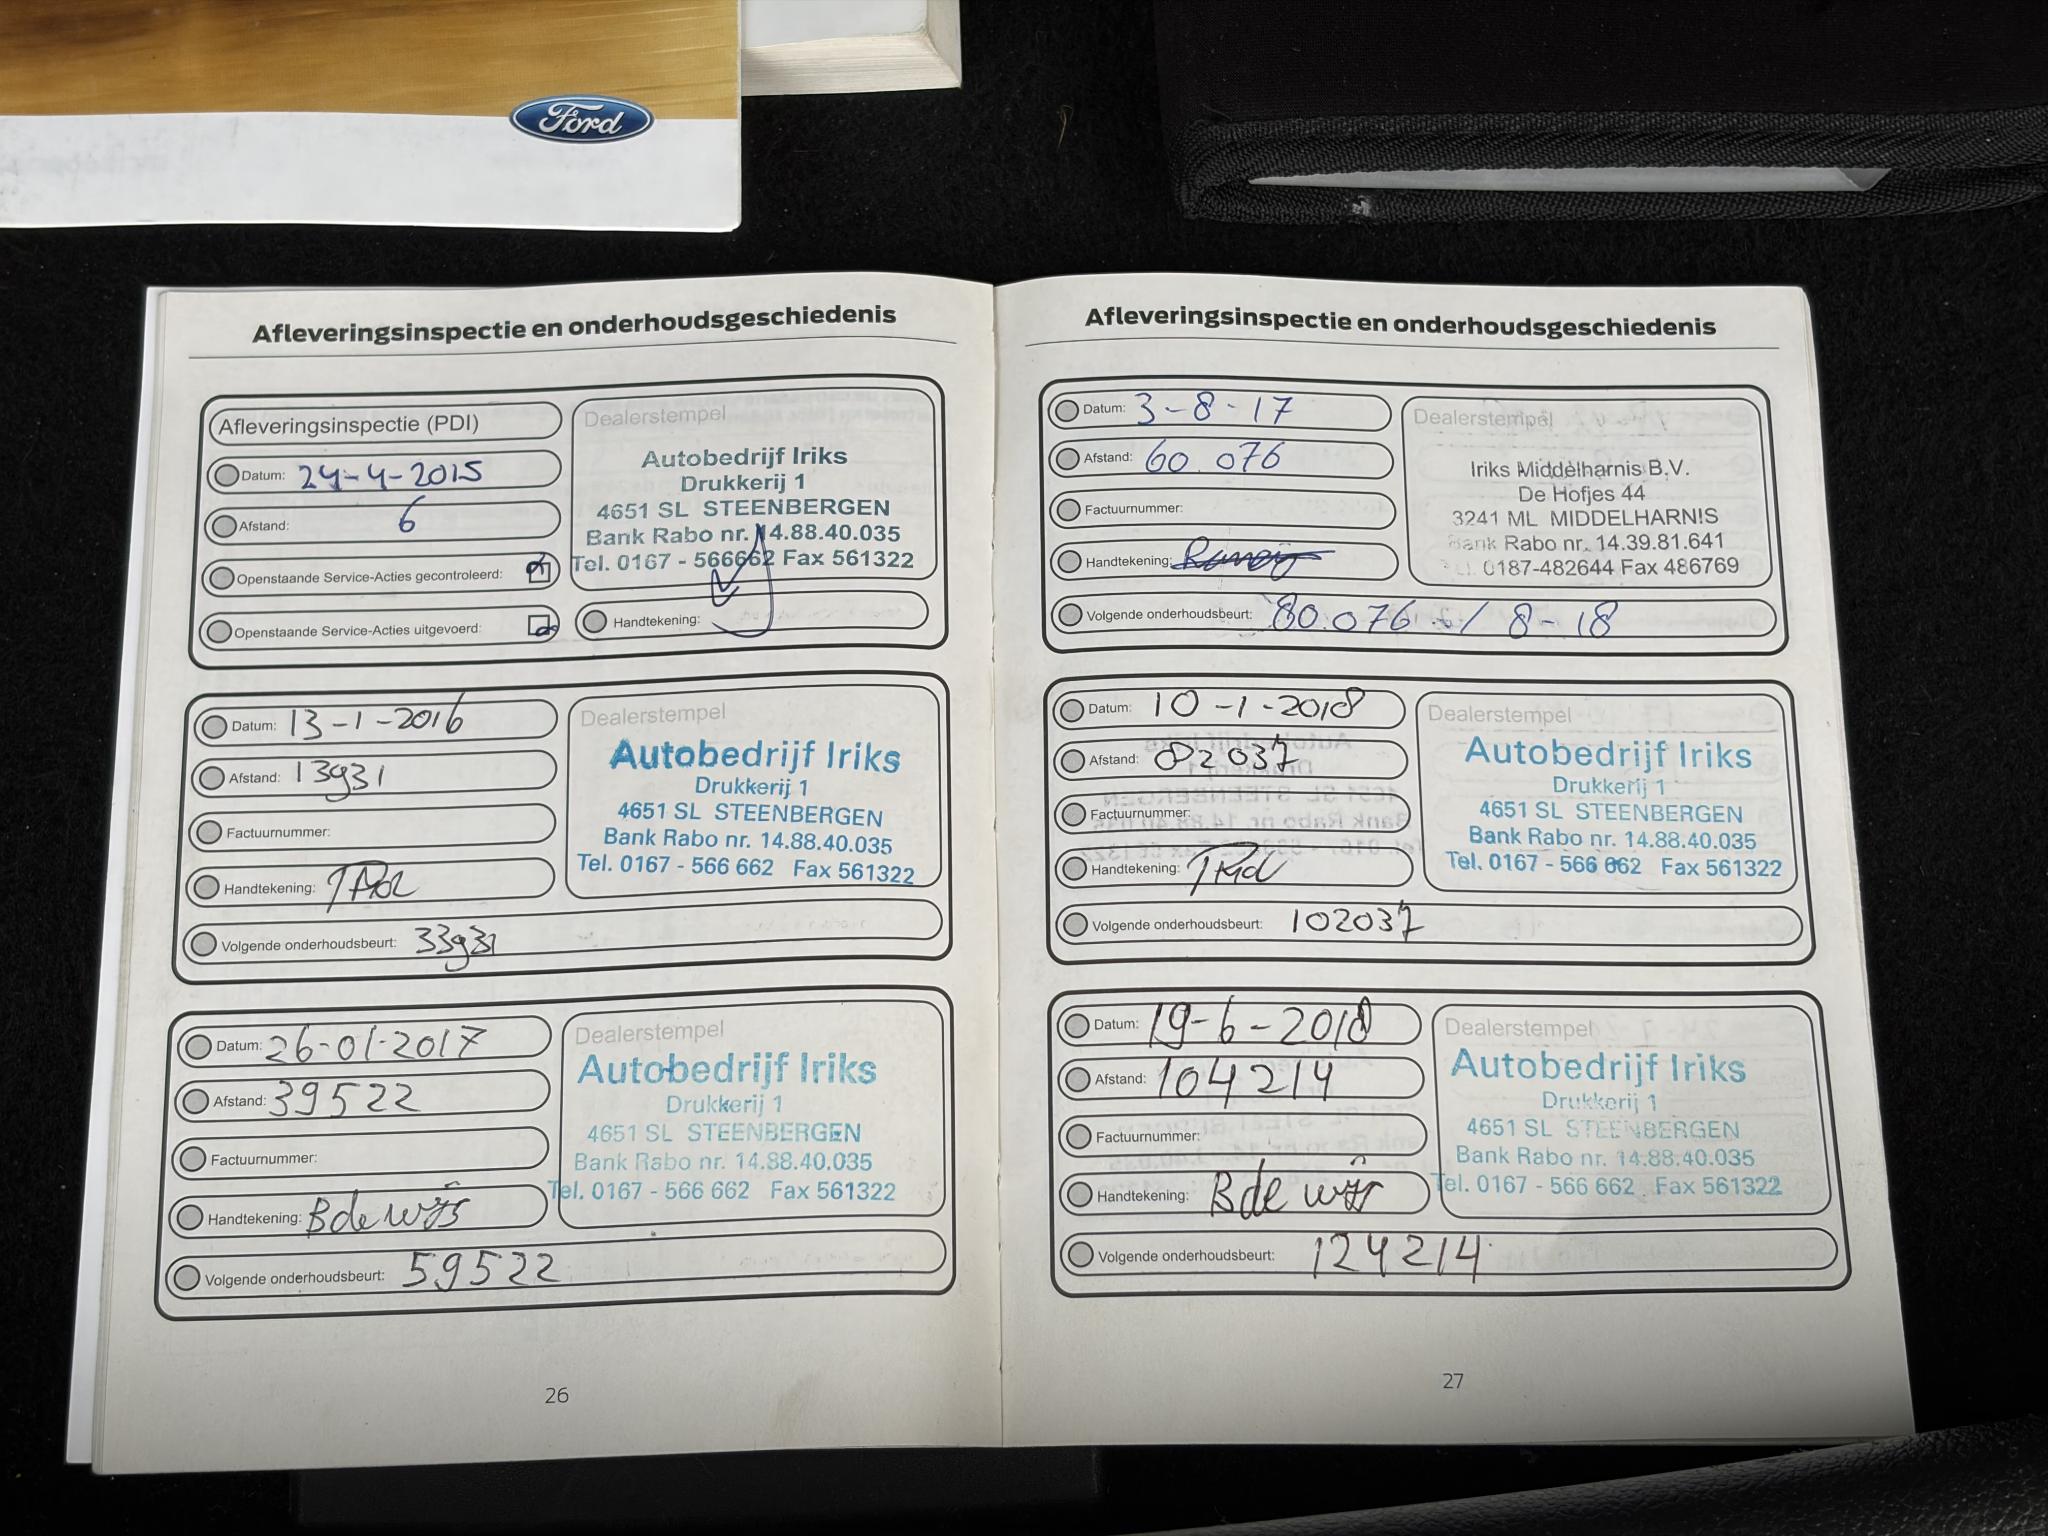 Ford
Afleveringsinspectie en onderhoudsgeschiedenis
Afleveringsinspectie (PDI)
Datum: 24-4-2015
Afstand: 6
Openstaande Service-Acties gecontroleerd:
Openstaande Service-Acties uitgevoerd:
Dealerstempel
Autobedrijf Iriks
Drukkerij 1
4651 SL STEENBERGEN
Bank Rabo nr. 14.88.40.035
Tel. 0167 - 566662 Fax 561322
Handtekening:
Datum: 13-1-2016
Afstand: 13931
Factuurnummer:
Handtekening:
Volgende onderhoudsbeurt: 33931
Dealerstempel
Autobedrijf Iriks
Drukkerij 1
4651 SL STEENBERGEN
Bank Rabo nr. 14.88.40.035
Tel. 0167 - 566 662 Fax 561322
Datum: 26-01-2017
Afstand: 39522
Factuurnummer:
Handtekening: B de wijs
Volgende onderhoudsbeurt: 59522
Dealerstempel
Autobedrijf Iriks
Drukkerij 1
4651 SL STEENBERGEN
Bank Rabo nr. 14.88.40.035
Tel. 0167 - 566 662 Fax 561322
26
Afleveringsinspectie en onderhoudsgeschiedenis
Datum: 3-8-17
Afstand: 60.076
Factuurnummer:
Handtekening:
Volgende onderhoudsbeurt: 80.076 / 8-18
Dealerstempel
Iriks Middelharnis B.V.
De Hofjes 44
3241 ML MIDDELHARNIS
Bank Rabo nr. 14.39.81.641
0187-482644 Fax 486769
Datum: 10-1-2018
Afstand: 82037
Factuurnummer:
Handtekening:
Volgende onderhoudsbeurt: 102037
Dealerstempel
Autobedrijf Iriks
Drukkerij 1
4651 SL STEENBERGEN
Bank Rabo nr. 14.88.40.035
Tel. 0167 - 566 662 Fax 561322
Datum: 19-6-2018
Afstand: 104214
Factuurnummer:
Handtekening: B de wijs
Volgende onderhoudsbeurt: 124214
Dealerstempel
Autobedrijf Iriks
Drukkerij 1
4651 SL STEENBERGEN
Bank Rabo nr. 14.88.40.035
Tel. 0167 - 566 662 Fax 561322
27